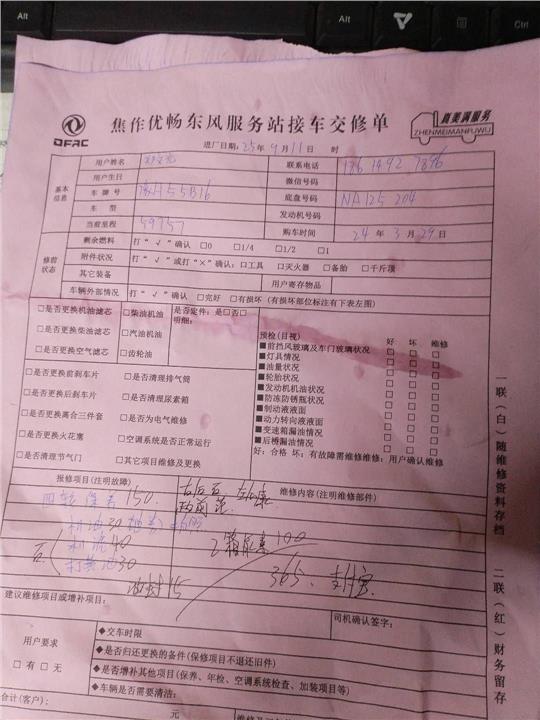 DFAC
焦作优畅东风服务站接车交修单
真美满服务
ZHENMEIMANFUWU
进厂日期：25年9月11日 时
基本信息
用户姓名
联系电话 186 1492 7896
用户生日
微信号码
车牌号
底盘号码 NA125 204
车型
发动机号码
当前里程 59757
购车时间 24年3月29日
修前状态
剩余燃料 打“√”确认 □0 □1/4 □1/2 □1
附件状况 打“√”或打“×”确认：□工具 □灭火器 □备胎 □千斤顶
其它装备
用户寄存物品
车辆外部情况 打“√”确认 □完好 □有损坏（有损坏部位标注有下表左图）
□是否更换机油滤芯 □柴油机油
□是否更换柴油滤芯 □汽油机油
□是否更换空气滤芯 □齿轮油
是否定件：是□否□
明细：
□是否更换前刹车片 □是否清理排气筒
□是否更换后刹车片 □是否清理尿素箱
□是否更换离合三件套 □是否为电气维修
□是否更换火花塞 □空调系统是否正常运行
□是否清理节气门 □其它项目维修及更换
预检（目视） 好 坏 维修
■前挡风玻璃及车门玻璃状况 □ □ □
■灯具情况 □ □ □
■油量状况 □ □ □
■轮胎状况 □ □ □
■发动机机油状况 □ □ □
■防冻防锈瓶状况 □ □ □
■制动液液面 □ □ □
■动力转向液液面 □ □ □
■变速箱漏油情况 □ □ □
■后桥漏油情况 □ □ □
好：合格 坏：有故障需维修维修：用户确认维修
报修项目（注明故障）
维修内容（注明维修部件）
四轮保养150
机油30
机滤40
打黄油30
油封15
100
365、支付宝
建议维修项目或增补项目：
司机确认签字：
用户要求
□有 □无
◆交车时限
◆是否归还更换的备件（保修项目不退还旧件）
◆是否增补其他项目（保养、年检、空调系统检查、加装项目等）
◆车辆是否需要清洁：
合计（客户）： 元
一联（白）随维修资料存档 二联（红）财务留存
Alt
Alt
Ctrl